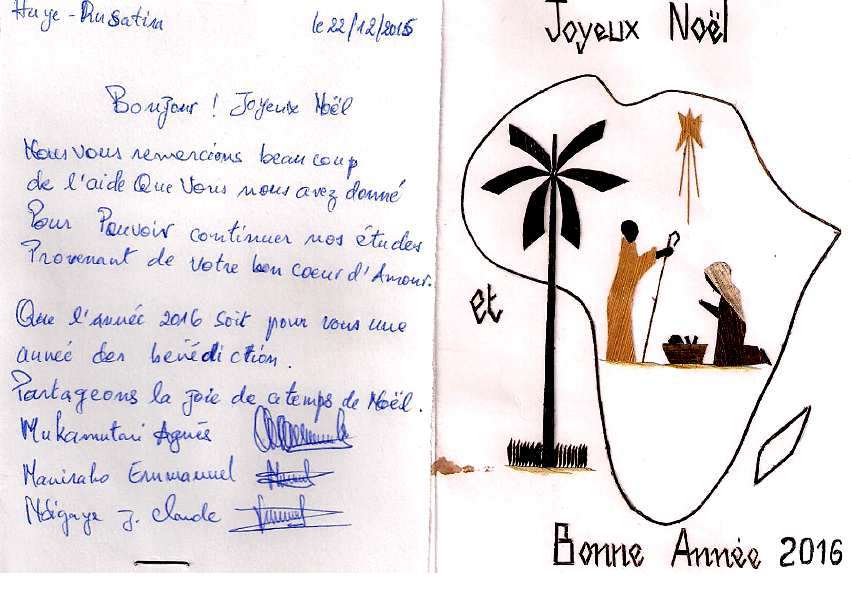 Huye - Rusatira
le 22/12/2015
Bonjour ! Joyeux Noël
Nous vous remercions beaucoup
de l'aide Que Vous nous avez donné
Pour Pouvoir continuer nos études
Provenant de votre bon coeur d'Amour.
Que l'année 2016 soit pour vous une
année des bénédiction.
Partageons la joie de ce temps de Noël.
Mukamutari Agnès
Manirabo Emmanuel
Ndigaye J. Claude
Joyeux Noël
et
Bonne Année 2016